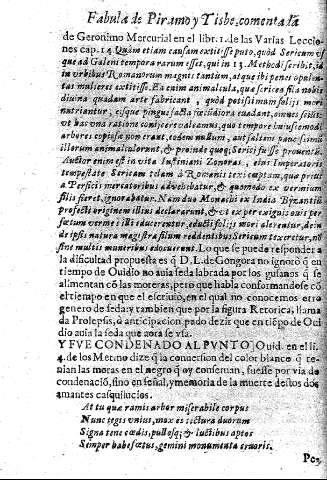 Fabula de Piramo y Tisbe, comentada
de Geronimo Mercurial en el libr. 1. de las Varias Leccio
nes cap. 14. Quòm etiam causam extitisse puto, quòd Sericum vs
que ad Galeni tempora rarum esset, qui in 13. Methodi scribit, id
in vrbibus Romanorum magnis tantum, atque ibi penes opulen-
tas mulieres extitisse. Ea enim animalcula, quæ sericea fila nobis
diuina quadam arte fabricant, quòd potissimum folijs mori
nutriantur, eisque pinguefacta excidiora euadant, omnes sciũt:
vt hac vna ratione conijcere valeamus, quo tempore huiusmodi
arbores copiosæ non erant, eodem nullum, aut saltem pauci símũ
illorum animalculorum, & proinde quoq; Serici fuisse prouentũ.
Auctor enim est in vita Iustiniani Zonoras, eius Imperatoris
tempestate Sericum telam à Romanis texi cæptam, quæ prius
à Persicis mercatoribus aduehebatur, & quomodo ex vermium
filis fieret, ignorabatur. Nam duo Monachi ex India Byzantiũ
profecti originem illius declararunt, & vt ex per exiguis ouis per
fœtum verme i illi educerentur, eduẽti folijs mori alerentur, dein
de ipsis natura magistra filum reddentibus Sericum texeretur, nõ
sine multis muneribus edocuerunt. Lo que se puede responder a
la dificultad propuesta es q̃ D. L. de Gongora no ignorò q̃ en
tiempo de Ouidio no auia seda labrada por los gusanos q̃ se
alimentan cõ las moreras, pero que habla conformandose cõ
el tienpo en que el escriuio, en el qual no conocemos otro
genero de seda: y tambien que por la figura Retorica, llama
da Prolepsis, ò anticipacion pudo dezir que en tiẽpo de Oui
dio auia la seda que aora se vsa.
Y FVE CONDENADO AL PVNTO, Ouid. en el li.
4. de los Metmo dize q̃ la conuersion del color blanco q̃ te-
nian las moras en el negro q̃ oy conseruan, fuesse por via de
condenaciõ, sino en señal, y memoria de la muerte destos dos
amantes casquilucios.
At tu quæ ramis arbor miserabile corpus
Nunc tegis vnius, mox es tectura duorum
Signa tene cædis, pullosq; & luctibus aptos
Semper habe fœtus, gemini monumenta cruoris.